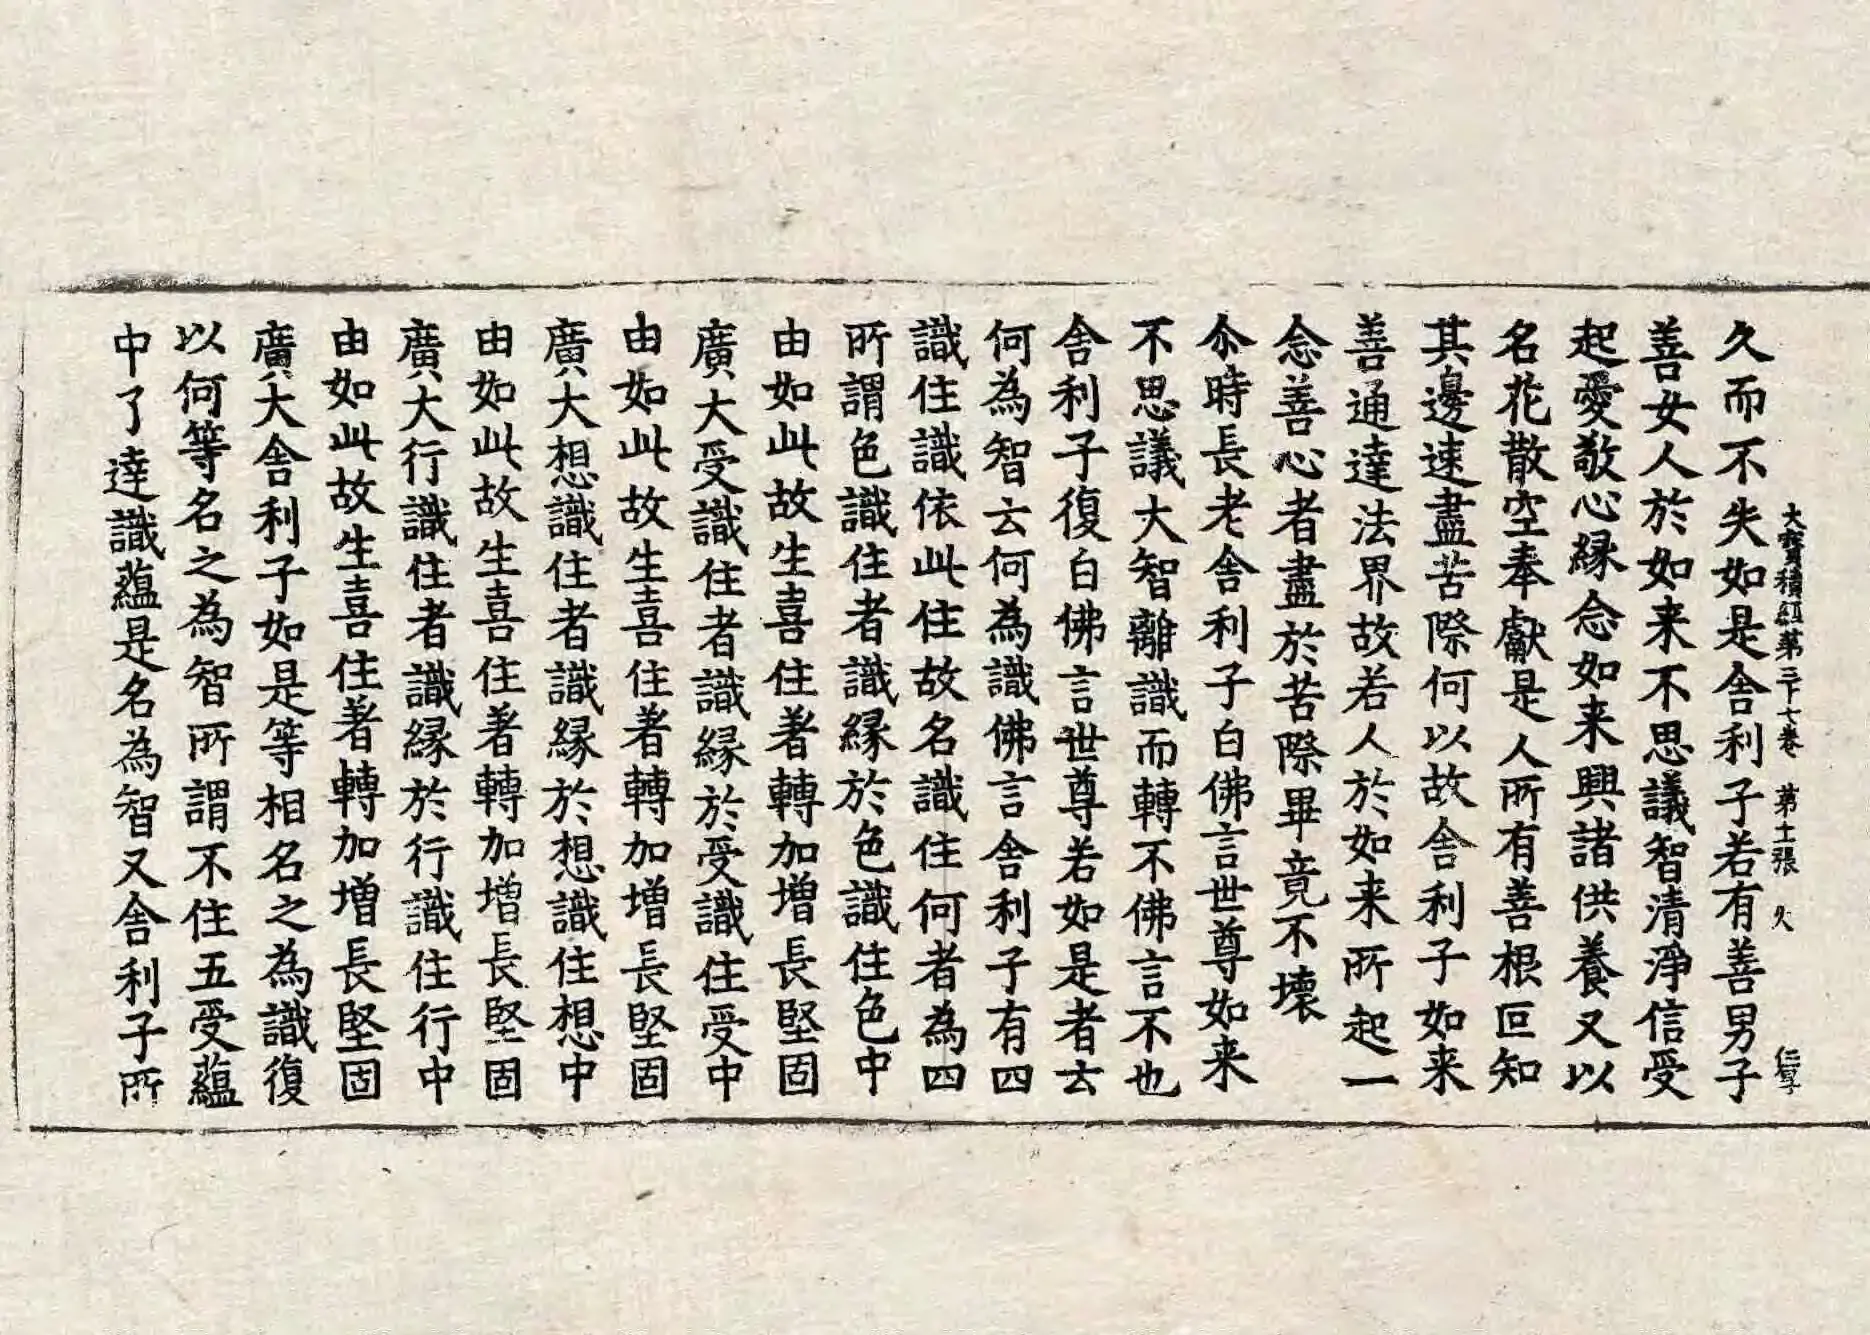 大寳積經第三十七卷 第十一張 火 仁孚
久而不失如是舍利子若有善男子
善女人於如来不思議智清淨信受
起愛敬心縁念如来興諸供養又以
名花散空奉獻是人所有善根叵知
其邊速盡苦際何以故舍利子如来
善通達法界故若人於如来所起一
念善心者盡於苦際畢竟不壞
尒時長老舍利子白佛言世尊如来
不思議大智離識而轉不佛言不也
舍利子復白佛言世尊若如是者云
何為智云何為識佛言舍利子有四
識住識依此住故名識住何者為四
所謂色識住者識縁於色識住色中
由如此故生喜住著轉加增長堅固
廣大受識住者識縁於受識住受中
由如此故生喜住著轉加增長堅固
廣大想識住者識縁於想識住想中
由如此故生喜住著轉加增長堅固
廣大行識住者識縁於行識住行中
由如此故生喜住著轉加增長堅固
廣大舍利子如是等相名之為識復
以何等名之為智所謂不住五受蘊
中了達識蘊是名為智又舍利子所